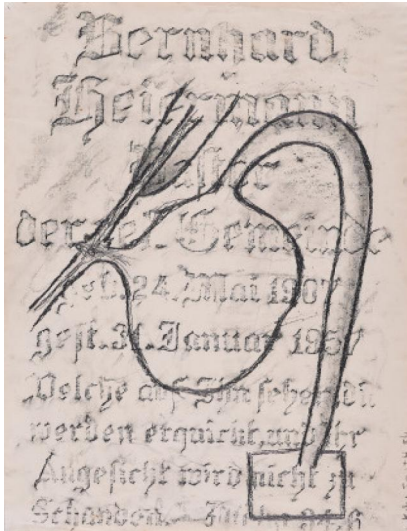 Bernhard
Heiermann
Pastor
der ref. Gemeinde
geb. 24. Mai 1907
gest. 31. Januar
Welche auf Ihn sehen, die
werden erquickt, und ihr
Angesicht wird nicht zu
Schanden.